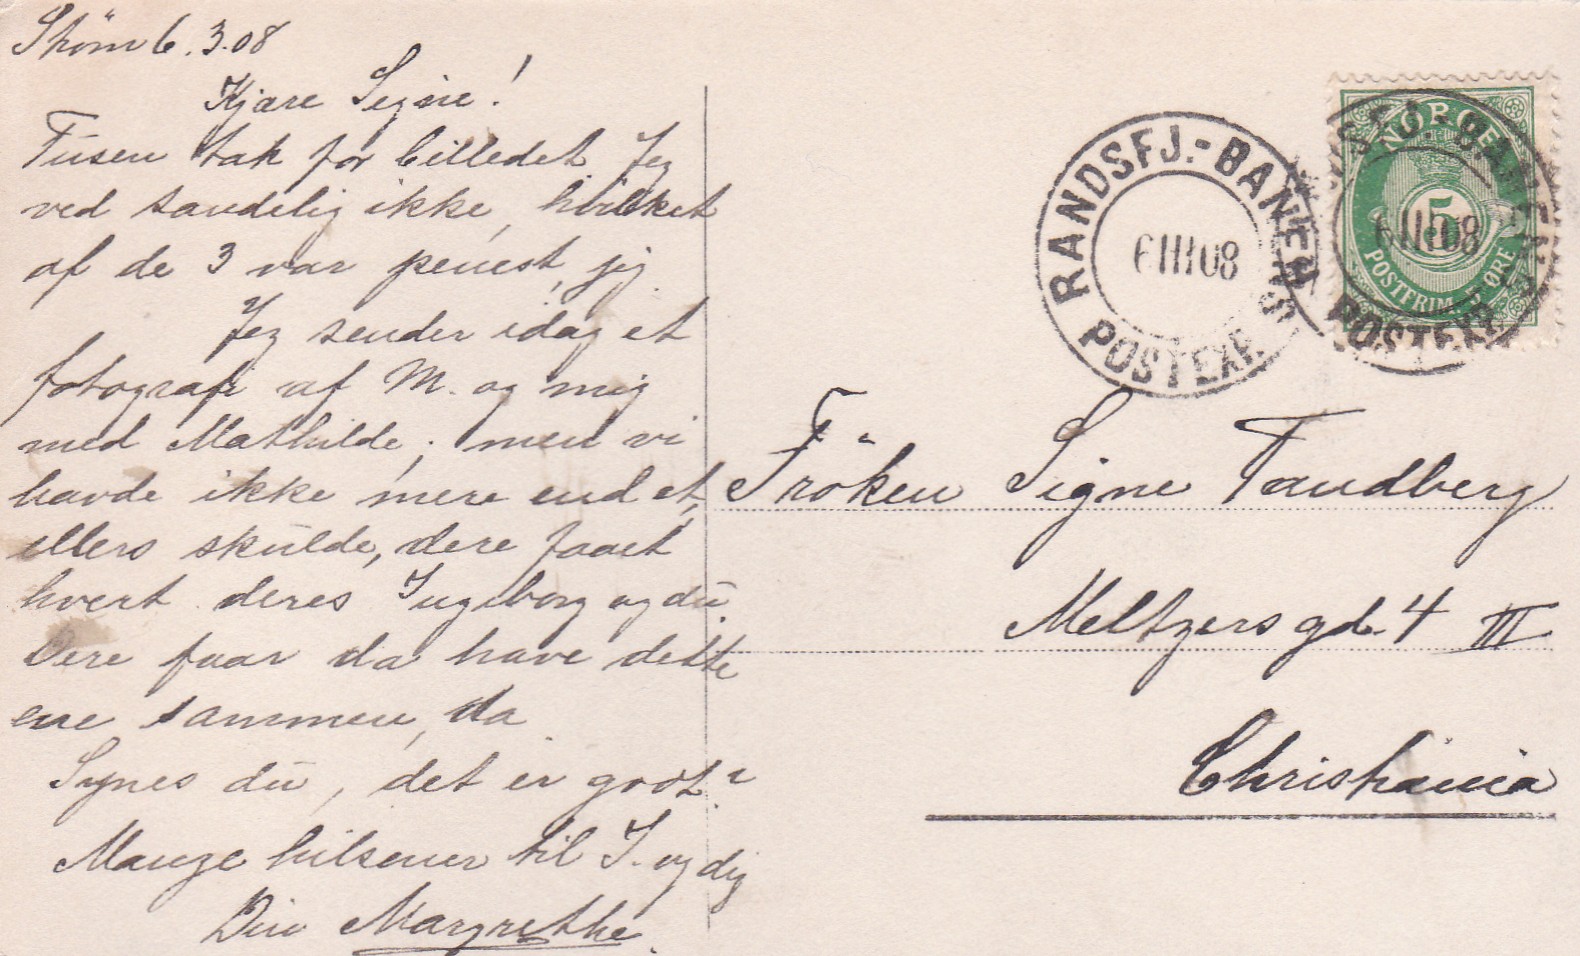 Strøm 6.3.08
Kjære Signe!
Tusen tak for billedet. Jeg
ved sandelig ikke, hvilket
af de 3 var penest, jeg.
Jeg sender idag et
fotografi af M. og mig
med Mathilde; men vi
havde ikke mere end et,
ellers skulde, dere faaet
hvert deres Ingeborg og du.
Dere faar da have dette
ene sammen, da
Synes du, det er godt?
Mange hilsener til I. og dig
Din Margrethe.
RANDSFJ.-BANENS
6 III 08
POSTEXP.
RANDSFJ.-BANENS
6 III 08
POSTEXP.
NORGE
5
POSTFRIM. 5 ØRE
Fröken Signe Tandberg
Meltzers gd. 4 III
Christiania